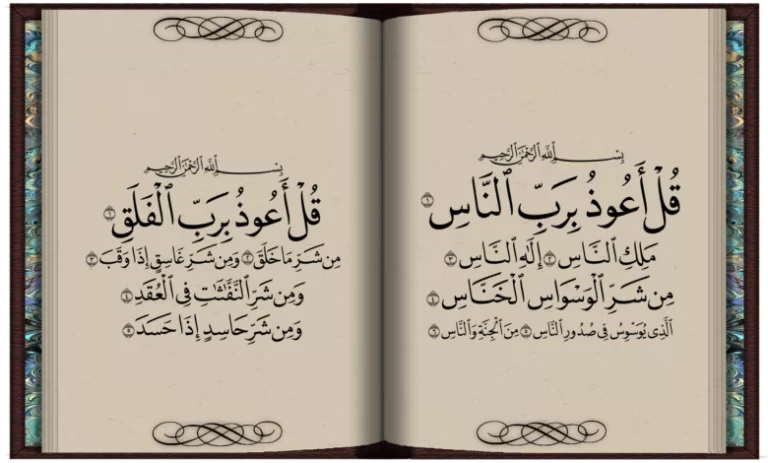 بِسْمِ اللَّهِ الرَّحْمَٰنِ الرَّحِيمِ
قُلْ أَعُوذُ بِرَبِّ ٱلنَّاسِ ١
مَلِكِ ٱلنَّاسِ ٢ إِلَٰهِ ٱلنَّاسِ ٣
مِن شَرِّ ٱلْوَسْوَاسِ ٱلْخَنَّاسِ ٤
ٱلَّذِى يُوَسْوِسُ فِى صُدُورِ ٱلنَّاسِ ٥ مِنَ ٱلْجِنَّةِ وَٱلنَّاسِ ٦
بِسْمِ اللَّهِ الرَّحْمَٰنِ الرَّحِيمِ
قُلْ أَعُوذُ بِرَبِّ ٱلْفَلَقِ ١
مِن شَرِّ مَا خَلَقَ ٢ وَمِن شَرِّ غَاسِقٍ إِذَا وَقَبَ ٣
وَمِن شَرِّ ٱلنَّفَّٰثَٰتِ فِى ٱلْعُقَدِ ٤
وَمِن شَرِّ حَاسِدٍ إِذَا حَسَدَ ٥